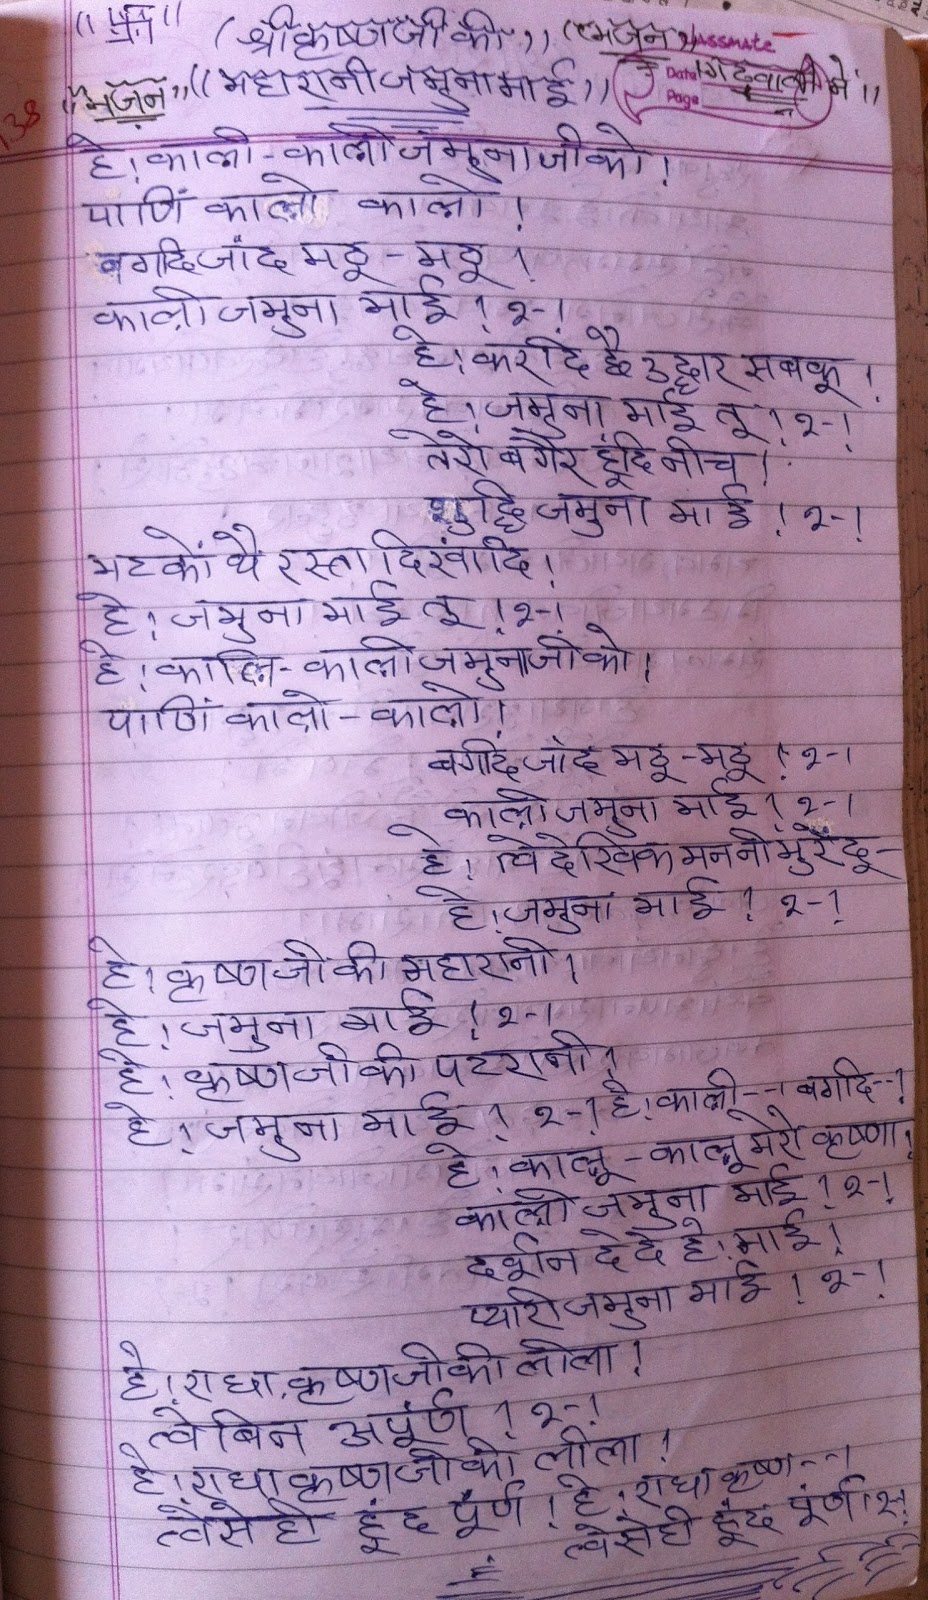 (श्रीकृष्णजी की,,) ((भजन,, CLASSMATE
((भजन,, ((महारानी जमुना माई,,)) Date गढ़वाली में।।
138 Page
हे। काली-काली जमुना जी को।
पाणिं कालो कालो।
बगदि जांद मठु-मठु।
काली जमुना माई। २-।
हे। करदि छै उद्धार सबकू।
हे। जमुना माई तू। २-।
तेरो बगैर हूंदि नीच।
शुद्धि जमुना माई। २-।
भटकों थै रस्ता दिखांदि।
हे। जमुना माई तू। २-।
हे। कालि-काली जमुना जी को।
पाणिं कालो-कालो।
बगदि जांद मठु-मठु। २-।
काली जमुना माई। २-।
हे। त्वे देखिक मन नी भुरेंदू-
हे। जमुना माई। २-।
हे। कृष्ण जी की महारानी।
हे। जमुना माई। २-।
हे। कृष्ण जी की पटरानी।
हे। जमुना माई। २-। हे। काली--। बगदि--।
हे। कालू-कालू मेरो कृष्णा।
काली जमुना माई। २-।
दर्शन दे दे हे। माई।
प्यारी जमुना माई। २-।
हे। राधा, कृष्ण जी की लीला।
त्वे बिन अपूर्ण। २-।
हे। राधा कृष्ण जी की लीला।
त्वे से ही हूंद पूर्ण। हे। राधा कृष्ण--।
त्वे से ही हूंद पूर्ण। २-।